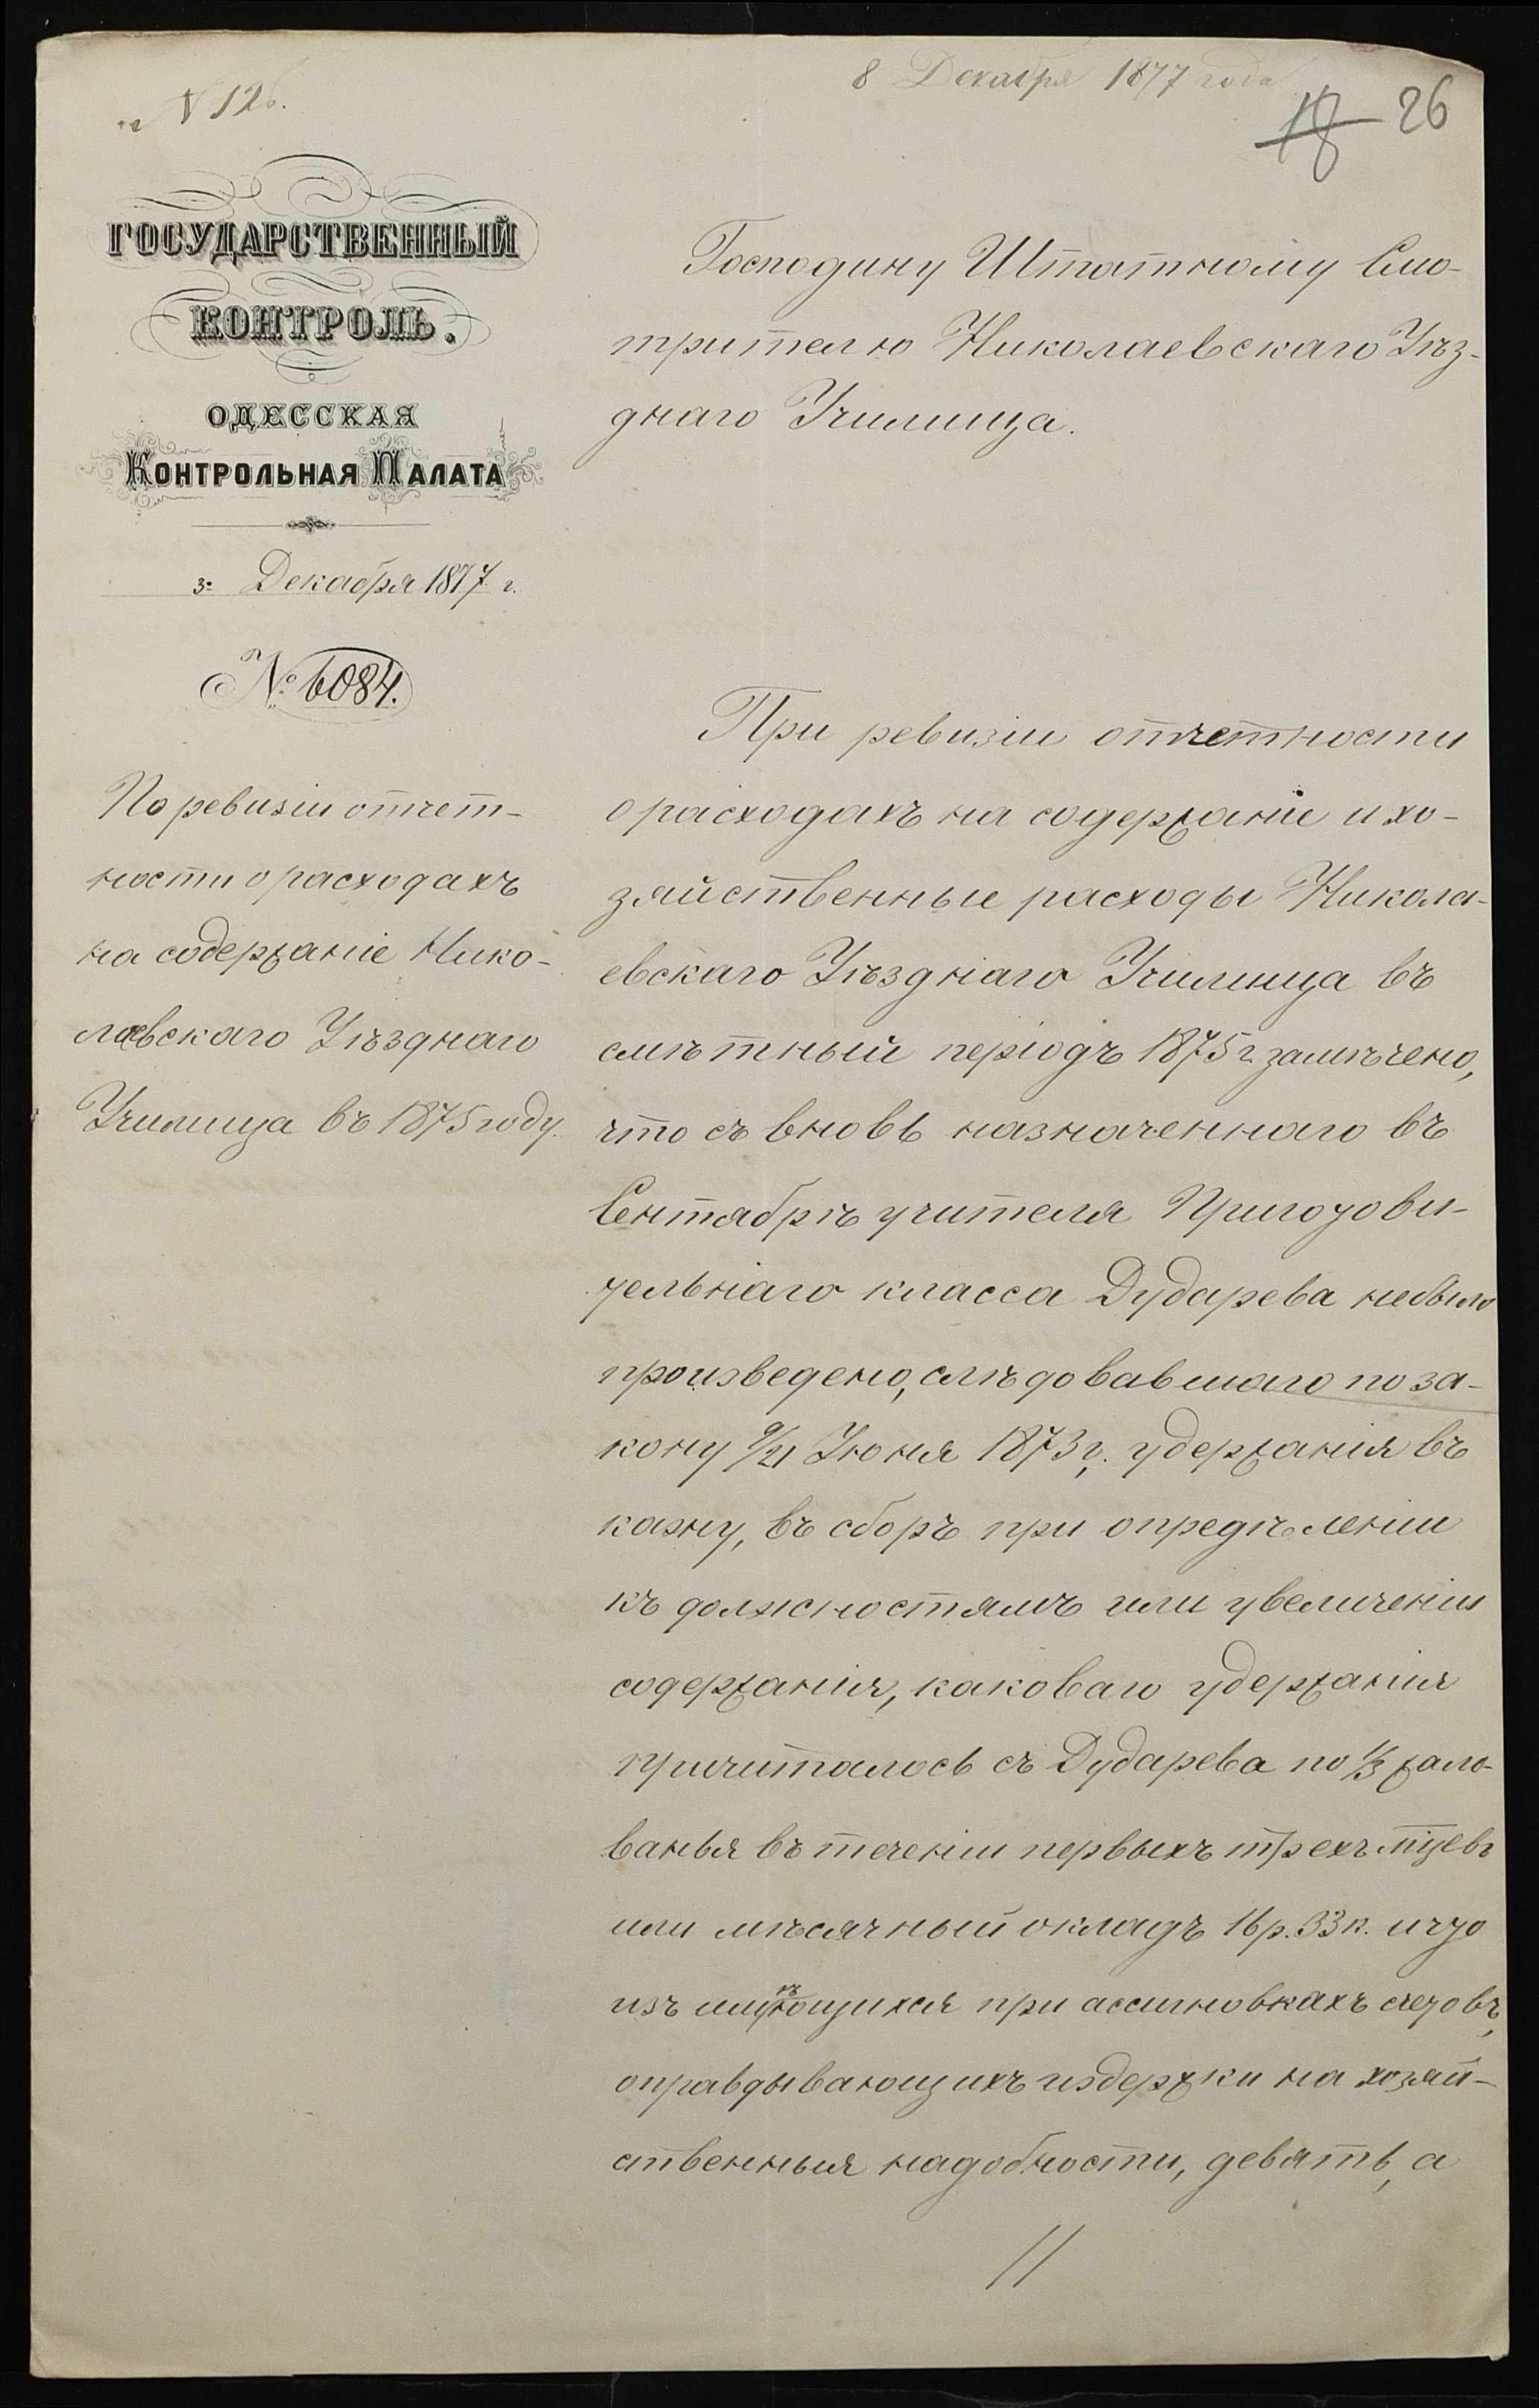 № 126.
8 Декабря 1877 года
18 26
ГОСУДАРСТВЕННЫЙ
КОНТРОЛЬ.
ОДЕССКАЯ
КОНТРОЛЬНАЯ ПАЛАТА
3 Декабря 1877 г.
№ 6084.
По ревизіи отчет-
ности о расходахъ
на содержаніе Нико-
лаевскаго Уѣзднаго
Училища въ 1875 году.
Господину Штатному Смо-
трителю Николаевскаго Уѣз-
днаго Училища.
При ревизіи отчетности
о расходахъ на содержаніе и хо-
зяйственные расходы Никола-
евскаго Уѣзднаго Училища въ
смѣтный періодъ 1875 г. замѣчено,
что съ вновь назначеннаго въ
Сентябрѣ учителя Приготови-
тельнаго класса Дударева небыло
произведено, слѣдовавшаго по за-
кону 9/21 Іюня 1873 г. удержанія въ
казну, въ сборъ при опредѣленіи
къ должностямъ или увеличеніи
содержанія, каковаго удержанія
причиталось съ Дударева по 1/3 жало-
ванья въ теченіи первыхъ трехъ мцевъ
или мѣсячный окладъ 16 р. 33 к. и что
изъ имѣющихся при ассигновкахъ счетовъ,
оправдывающихъ издержки на хозяй-
ственныя надобности, девять, а
//